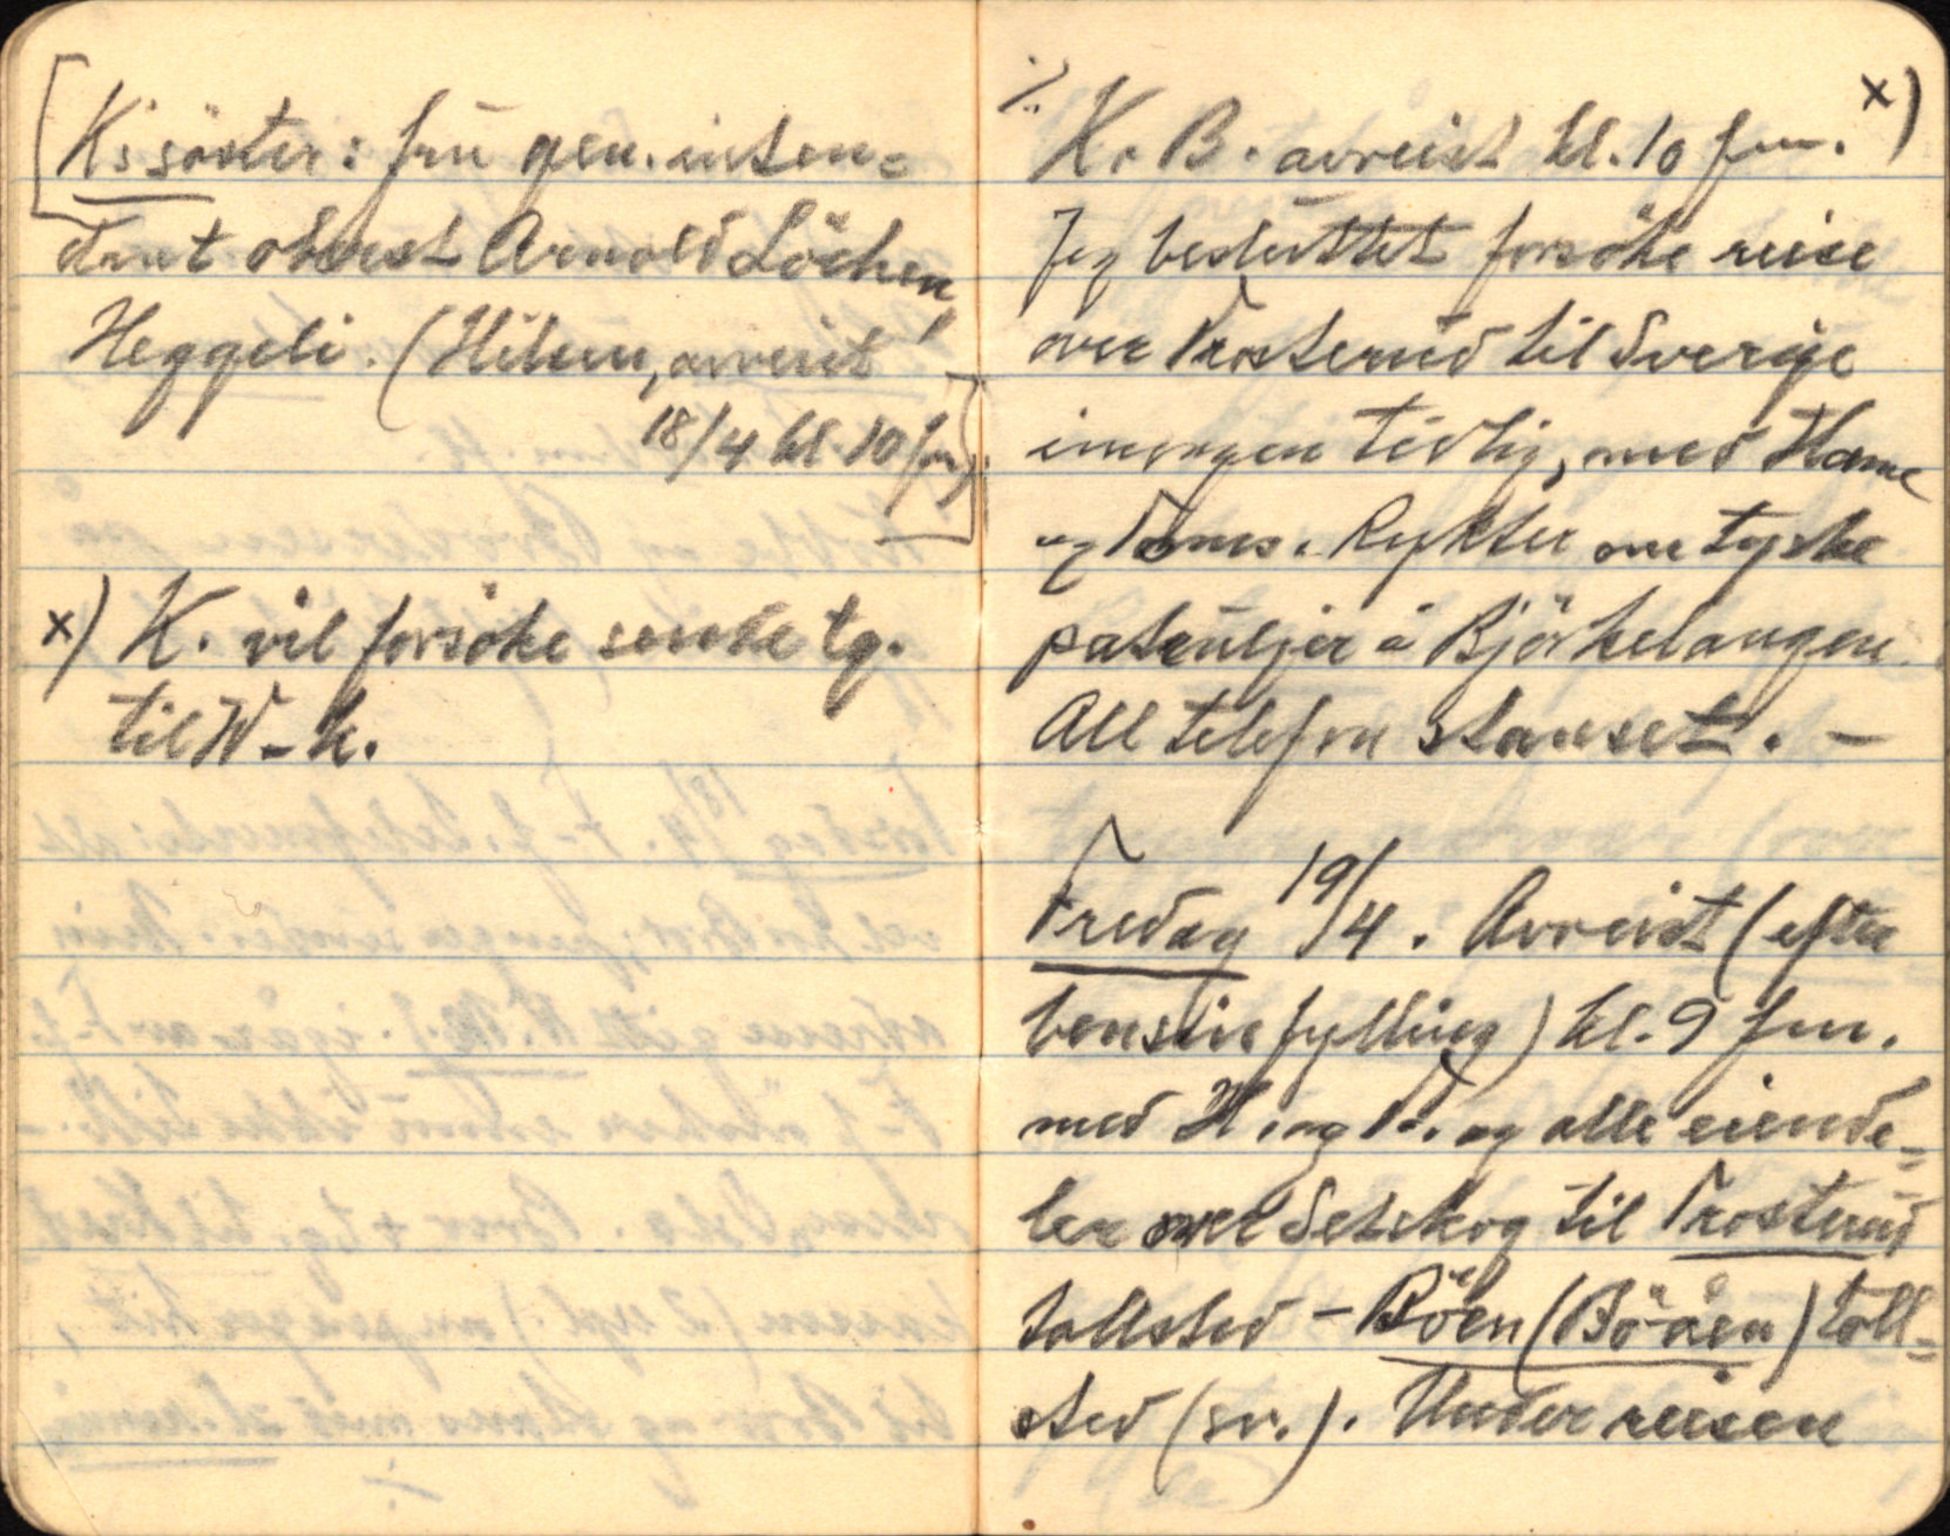 K's söster: fru gen. inten=
dant oberst Arnold Löchen,
Heggeli. (Hilsen, avreist
18/4 kl. 10 fm.)
x) K. vil forsöke sende tg.
til W-k.
K. B. avreist kl. 10 fm. x)
Jeg besluttet forsöke reise
over Trosterud til Sverige
imorgen tidlig, med Hanne
og Toms. Rykter om tyske
patruljer i Björkelangen.
All telefon stanset. -
Fredag 19/4. Avreist (efter
bensinfylling) kl. 9 fm.
med H. og T. og alle eiende=
ler over Setskog til Trosterud
tollsted - Böen (Bö-åen) toll=
sted (sv.). Under reisen